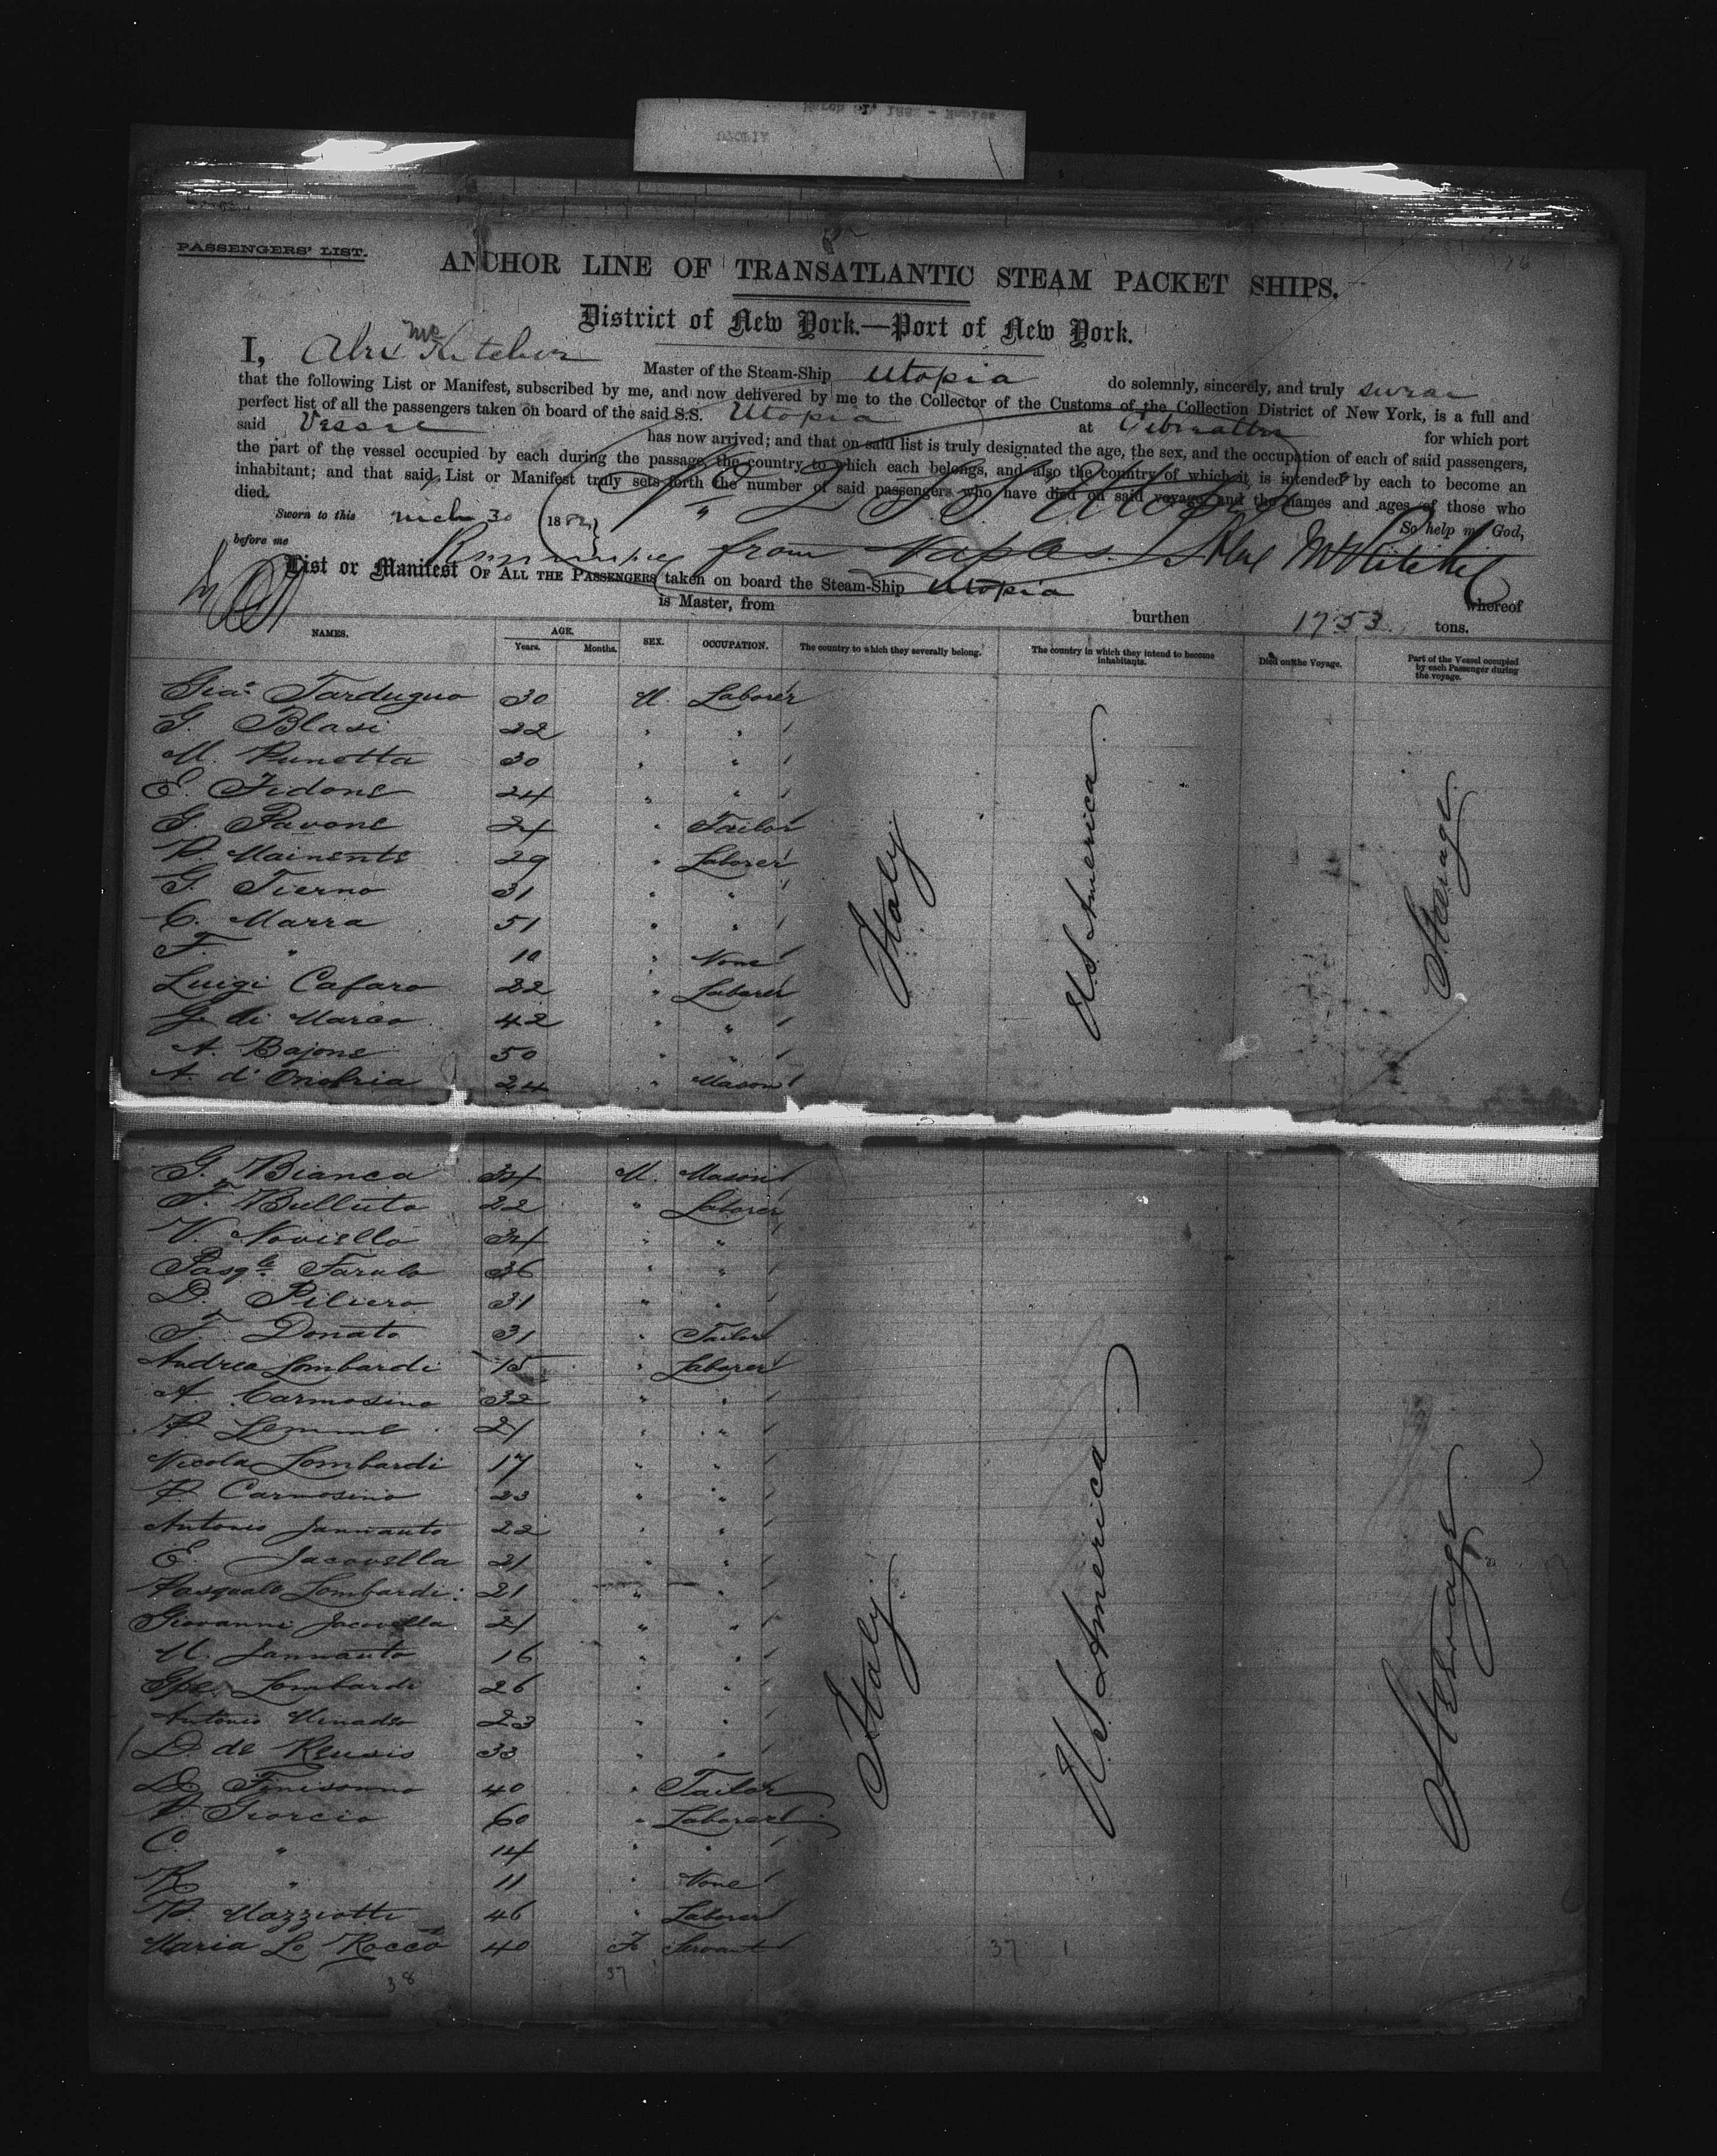 PASSENGERS' LIST.
ANCHOR LINE OF TRANSATLANTIC STEAM PACKET SHIPS.
District of New York.—Port of New York.
I, Master of the Steam-Ship Utopia do solemnly, sincerely, and truly swear
that the following List or Manifest, subscribed by me, and now delivered by me to the Collector of the Customs of the Collection District of New York, is a full and
perfect list of all the passengers taken on board of the said S.S. Utopia at Gibraltar for which port
said Vessel has now arrived; and that on said list is truly designated the age, the sex, and the occupation of each of said passengers,
the part of the vessel occupied by each during the passage, the country to which each belongs, and also the country of which it is intended by each to become an
inhabitant; and that said List or Manifest truly sets forth the number of said passengers who have died on said voyage, and the names and ages of those who
died.
So help me God,
Sworn to this 30 188
before me
from Naples.
List or Manifest OF ALL THE PASSENGERS taken on board the Steam-Ship Utopia whereof
is Master, from burthen 1753 tons.
NAMES. AGE. SEX. OCCUPATION. The country to which they severally belong. The country in which they intend to become inhabitants. Died on the Voyage. Part of the Vessel occupied by each Passenger during the voyage.
Years. Months.
Italy U.S. America Steerage
Tarduguo 30 M. Laborer
G. Blasi 22 " "
M. Punotta 30 " "
E. Fedone 24 " "
G. Pavone 24 " Tailor
P. Mainente 29 " Laborer
G. Tierno 31 " "
C. Marra 51 " "
F. " 10 " None
Luigi Cafaro 22 " Laborer
G. di Marco 42 " "
A. Bajone 50 " "
A. d'Onofria 24 " Mason
Italy. U.S. America. Steerage
G. Bianca 34 M. Mason
F. Bulluto 22 " Laborer
V. Noviello 34 " "
Pasqle Farulo 36 " "
D. Piliero 31 " "
F. Donato 31 " Tailor
Andrea Lombardi 15 " Laborer
A. Carmosino 32 " "
P. Lemme 21 " "
Nicola Lombardi 17 " "
P. Carmosino 23 " "
Antonio Jannauto 22 " "
E. Jacovella 21 " "
Pasquale Lombardi 21 " "
Giovanni Jacovella 21 " "
M. Jannauto 16 " "
Gpe. Lombardi 26 " "
Antonio 23 " "
D. de Reusis 33 " "
D. Finisonno 40 " Tailor
P. Giorcio 60 " Laborer
C. " 14 " "
R. " 11 " None
P. Mazziotti 46 " Laborer
Maria Lo Rocco 40 F Servant
38 37 37 1